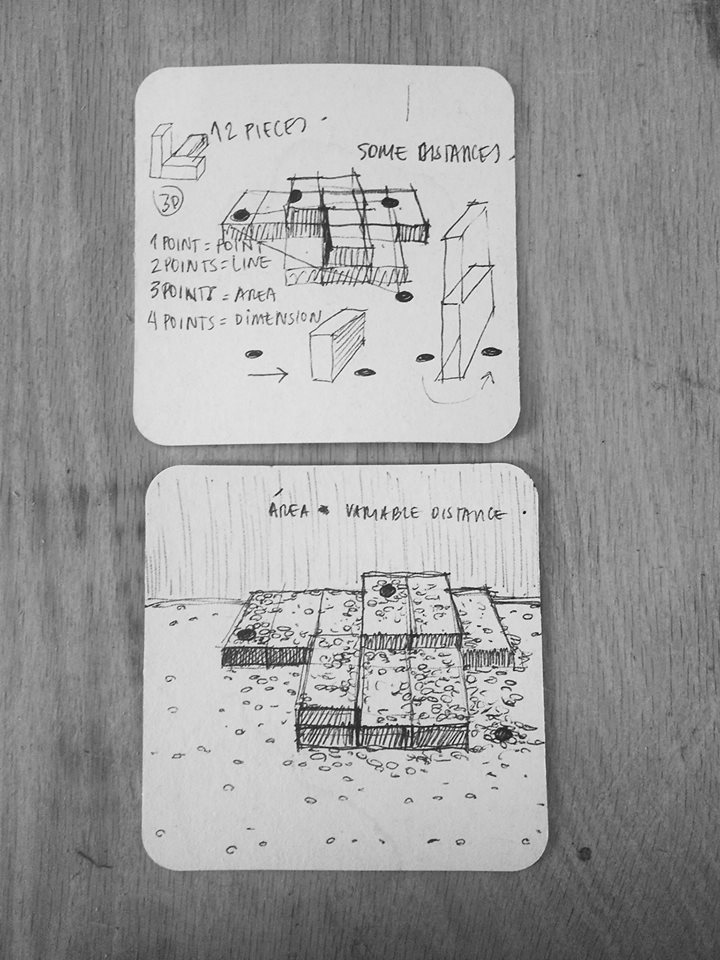 12 PIECES.
SOME DISTANCES.
3D
1 POINT = POINT
2 POINTS = LINE
3 POINTS = AREA
4 POINTS = DIMENSION
ÁREA = VARIABLE DISTANCE.